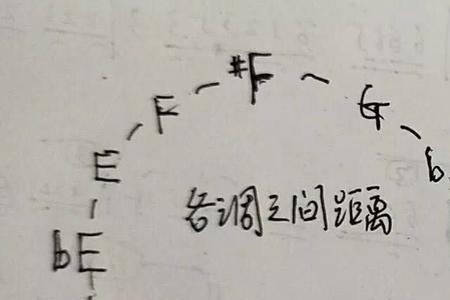 #F
F
G
E
b
各调之间距离
bE